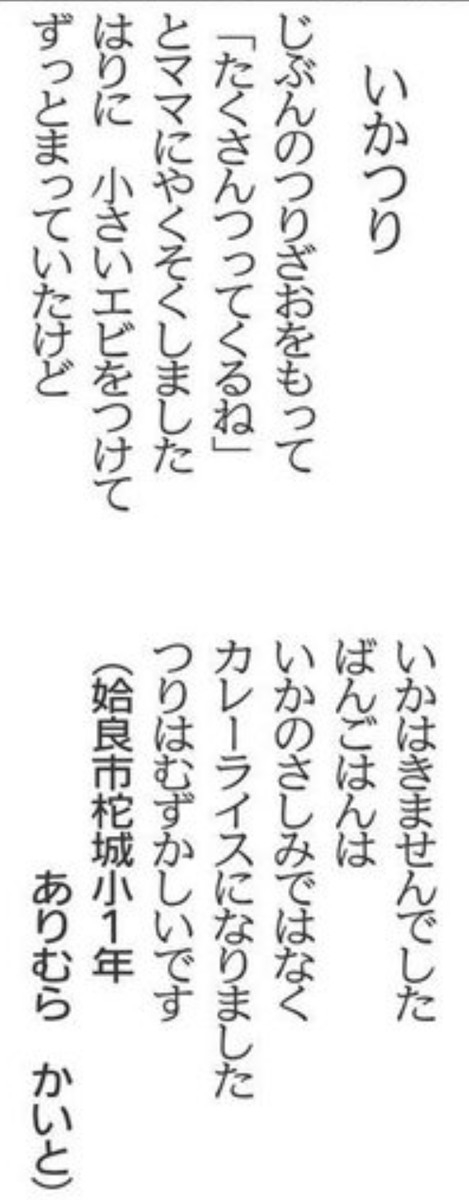 いかつり
じぶんのつりざおをもって
「たくさんつってくるね」
とママにやくそくしました
はりに　小さいエビをつけて
ずっとまっていたけど
いかはきませんでした
ばんごはんは
いかのさしみではなく
カレーライスになりました
つりはむずかしいです
（姶良市柁城小1年
ありむら　かいと）